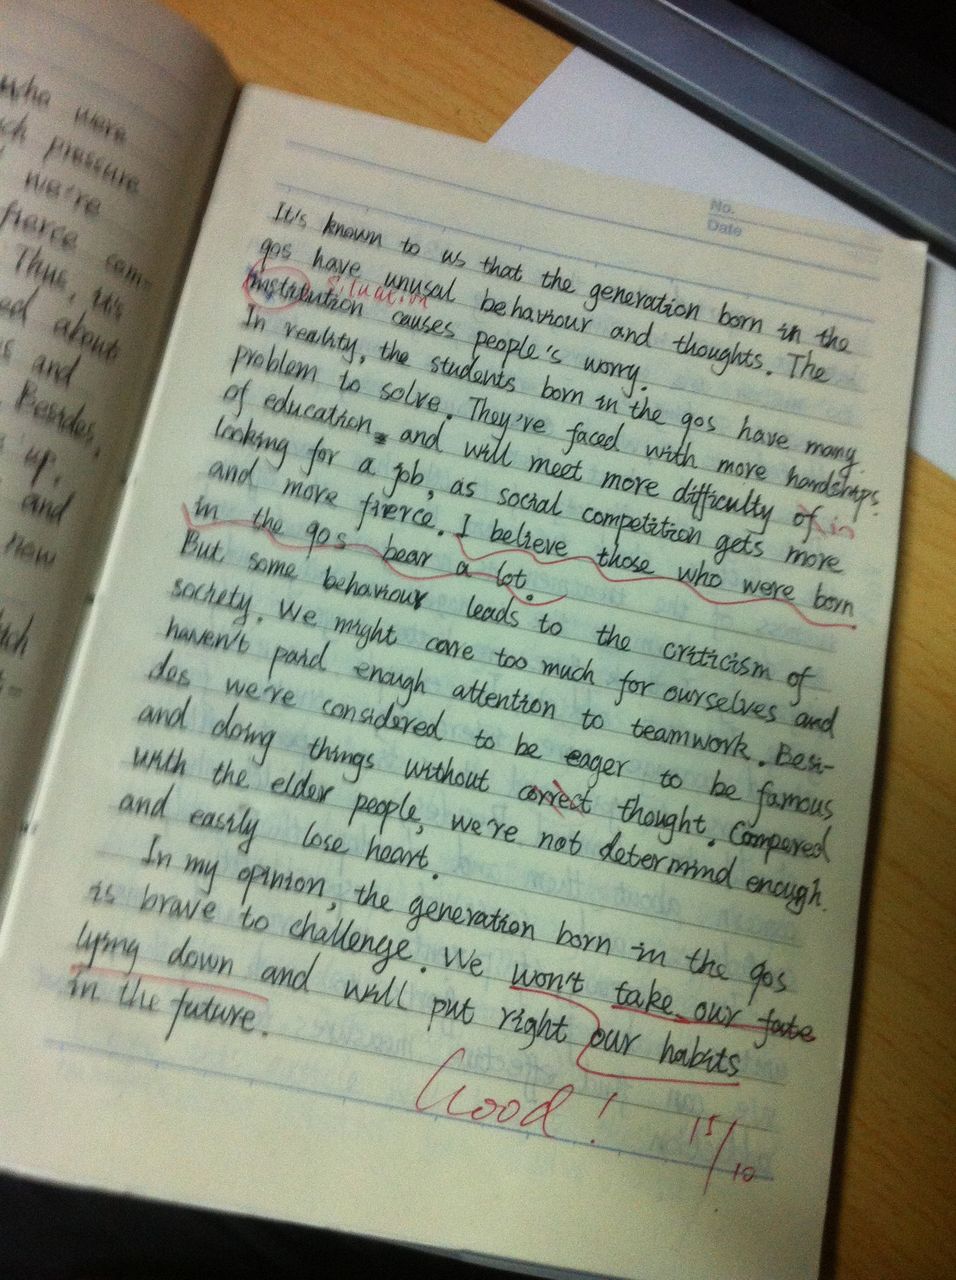 who were
pressure
we're
fierce com-
Thus, it's
about
and
Besides,
up,
and
now
No.
Date
It's known to us that the generation born in the
90s have unusal behaviour and thoughts. The
institution situation causes people's worry.
In reality, the students born in the 90s have many
problem to solve. They're faced with more hardships
of education, and will meet more difficulty of in
looking for a job, as social competition gets more
and more fierce. I believe those who were born
in the 90s bear a lot.
But some behaviour leads to the criticism of
society. We might care too much for ourselves and
haven't paid enough attention to teamwork. Besi-
des we're considered to be eager to be famous
and doing things without correct thought. Compered
with the elder people, we're not determind enough
and easily lose heart.
In my opinion, the generation born in the 90s
is brave to challenge. We won't take our fate
lying down and will put right our habits
in the future.
Good! 15/10